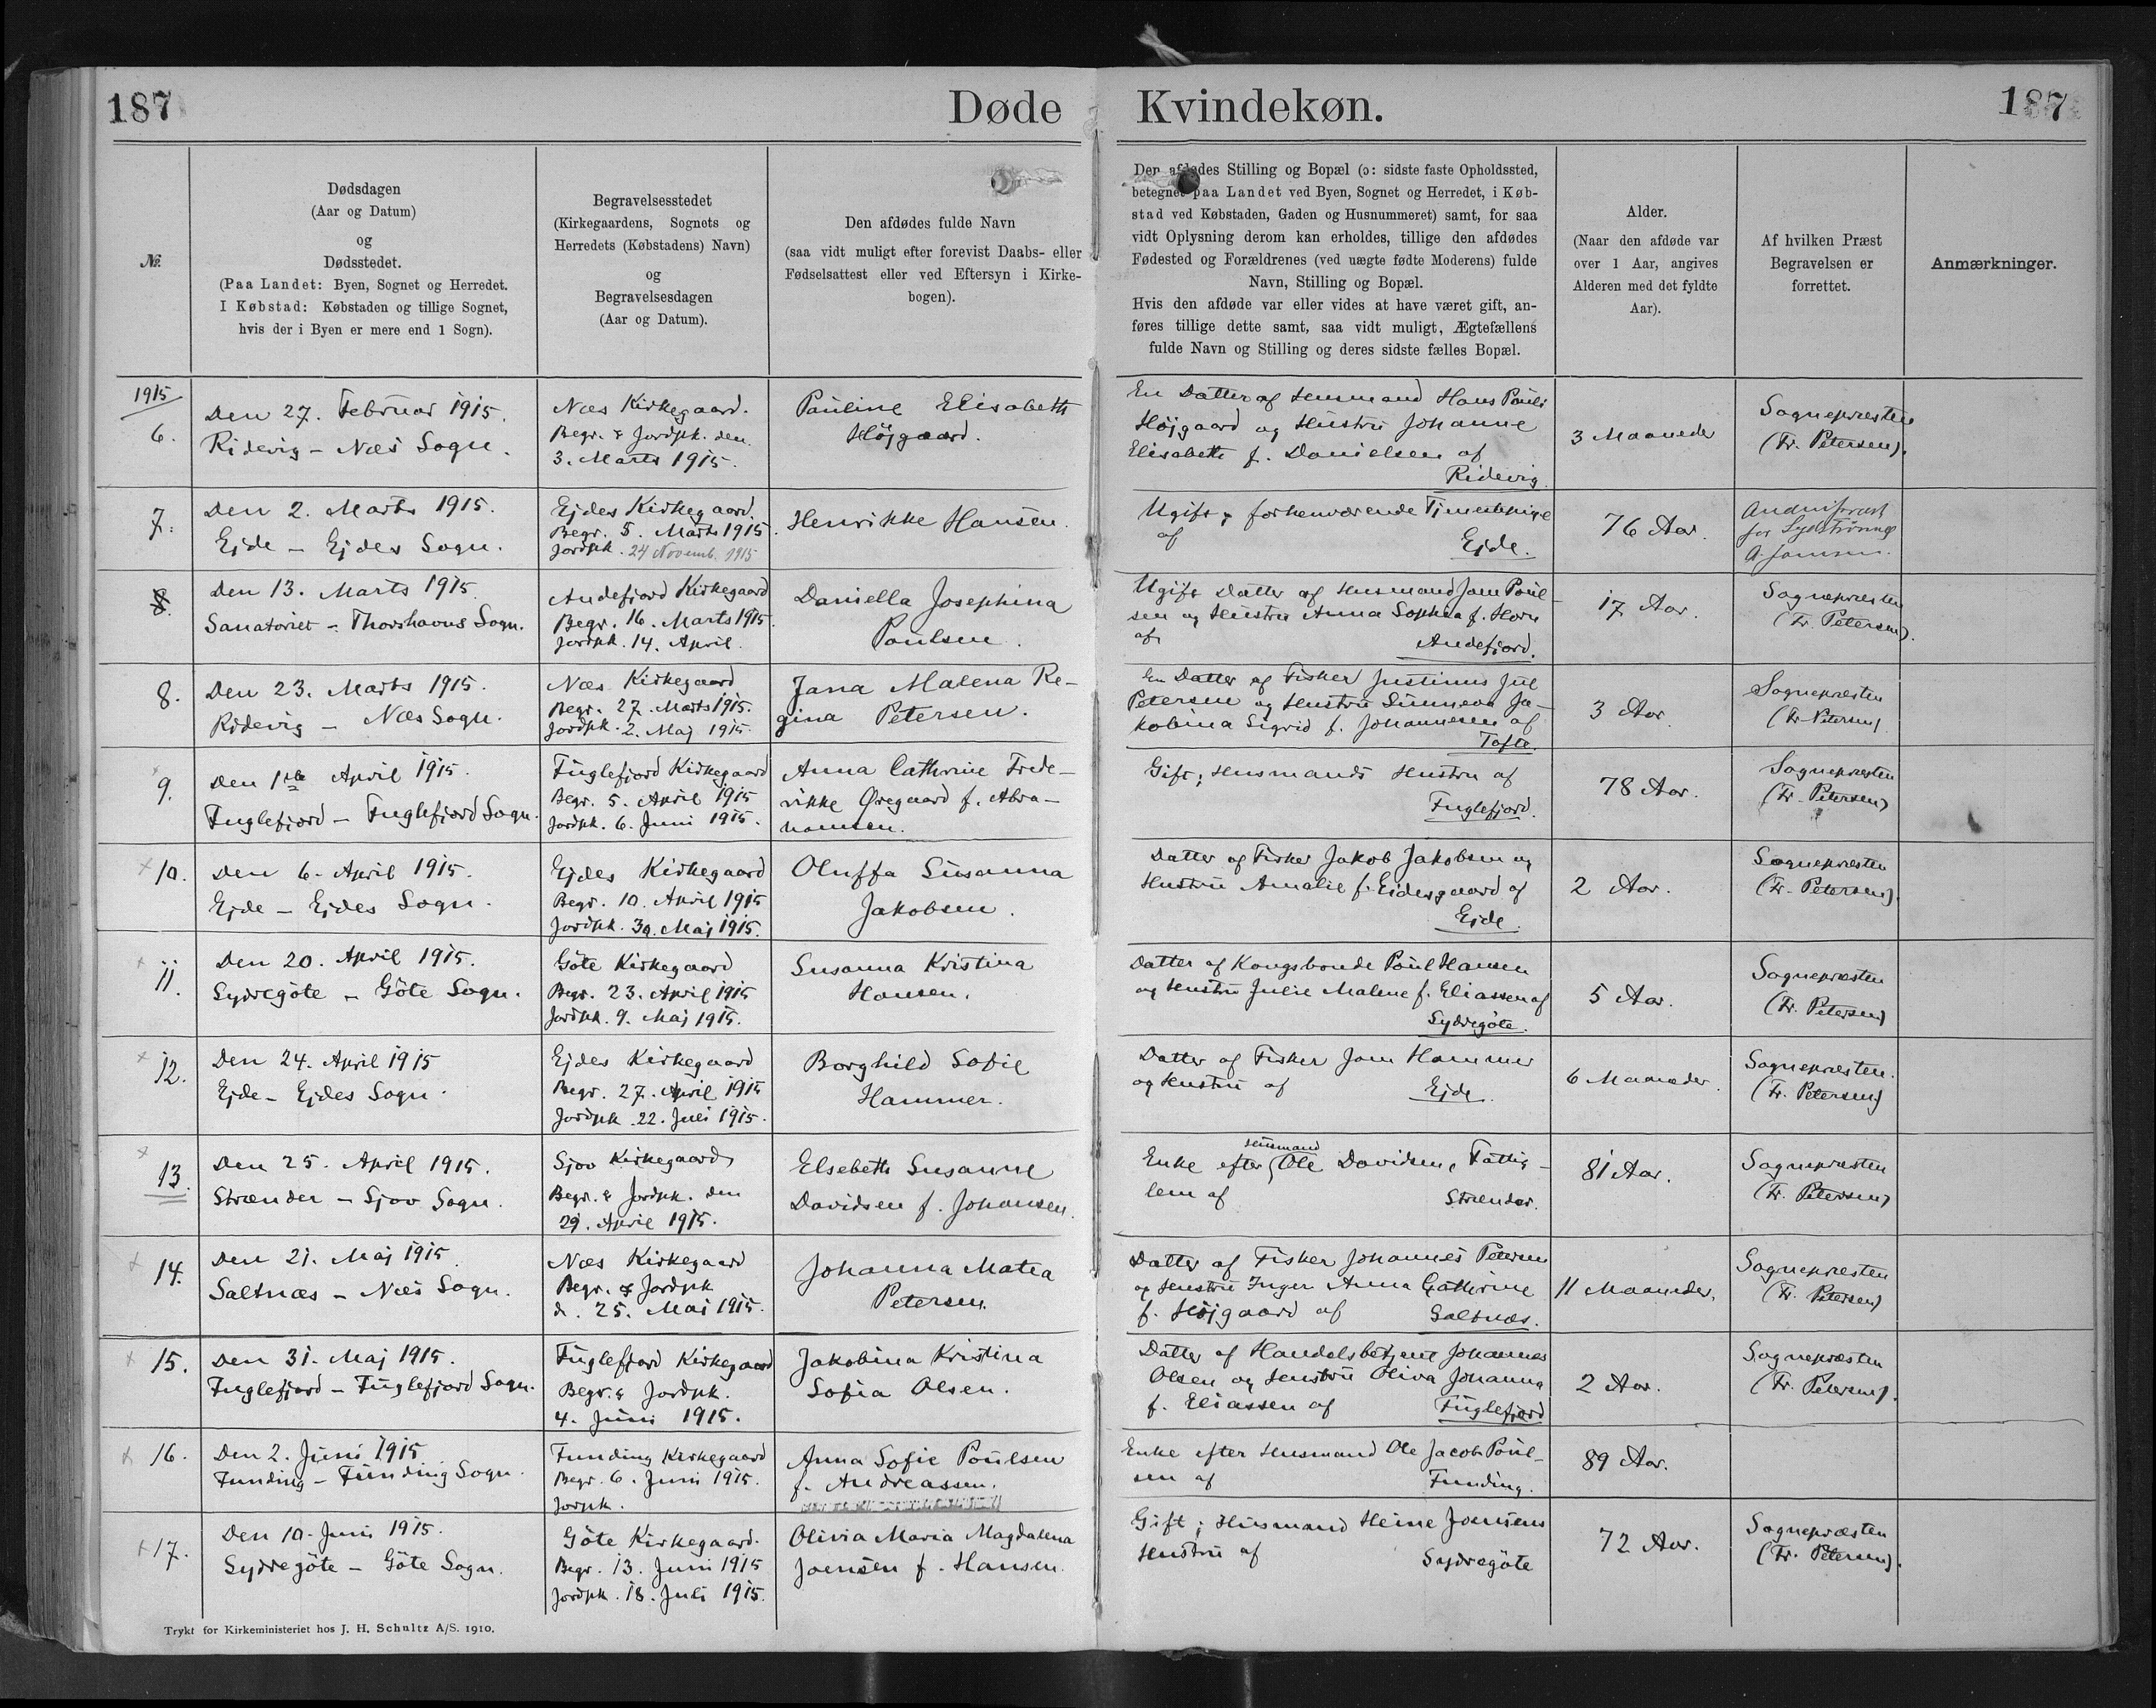 187
Døde
Kvindekøn.
187
№.
Dødsdagen
(Aar og Datum)
og
Dødsstedet.
(Paa Landet: Byen, Sognet og Herredet.
I Købstad: Købstaden og tillige Sognet,
hvis der i Byen er mere end 1 Sogn).
Begravelsesstedet
(Kirkegaardens, Sognets og
Herredets (Købstadens) Navn)
og
Begravelsesdagen
(Aar og Datum).
Den afdødes fulde Navn
(saa vidt muligt efter forevist Daabs- eller
Fødselsattest eller ved Eftersyn i Kirke-
bogen).
Den afdødes Stilling og Bopæl (ɔ: sidste faste Opholdssted,
betegnet paa Landet ved Byen, Sognet og Herredet, i Køb-
stad ved Købstaden, Gaden og Husnummeret) samt, for saa
vidt Oplysning derom kan erholdes, tillige den afdødes
Fødested og Forældrenes (ved uægte fødte Moderens) fulde
Navn, Stilling og Bopæl.
Hvis den afdøde var eller vides at have været gift, an-
føres tillige dette samt, saa vidt muligt, Ægtefællens
fulde Navn og Stilling og deres sidste fælles Bopæl.
Alder.
(Naar den afdøde var
over 1 Aar, angives
Alderen med det fyldte
Aar).
Af hvilken Præst
Begravelsen er
forrettet.
Anmærkninger.
1915
6.
Den 27. Februar 1915.
Ridevig - Næs Sogn.
Næs Kirkegaard.
Begr. & Jordpk. den
3. Marts 1915.
Pauline Elisabeth
Højgaard.
En Datter af Husmand Hans Pauli
Højgaard og Hustru Johanne
Elisabeth f. Danielsen af
Ridevig.
3 Maaneder
Sognepræsten
(Fr. Petersen).
7.
Den 2. Marts 1915.
Ejde - Ejdes Sogn.
Ejdes Kirkegaard.
Begr. 5. Marts 1915
Jordpk. 24 Novemb. 1915
Henrikke Hansen.
Ugift, forhenværende Tjenestepige
af
Ejde.
76 Aar.
for Sydstrømø
8.
Den 13. Marts 1915.
Sanatoriet - Thorshavns Sogn.
Andefjord Kirkegaard
Begr. 16. Marts 1915.
Jordpk. 14. April.
Daniella Josephina
Poulsen.
Ugift Datter af Husmand Joen Poul-
sen og Hustru Anna Sophia f. Horn
af
Andefjord.
17 Aar.
Sognepræsten
(Fr. Petersen).
8.
Den 23. Marts 1915.
Ridevig - Næs Sogn.
Næs Kirkegaard
Begr. 27. Marts 1915.
Jordpk. 2. Maj 1915.
Jana Malena Re-
gina Petersen.
En Datter af Fisker Justinus Jul
Petersen og Hustru Sunneva Ja-
kobina Sigrid f. Johannesen af
Tofte.
3 Aar
Sognepræsten
(Fr. Petersen)
9.
Den 1ste April 1915.
Fuglefjord - Fuglefjord Sogn.
Fuglefjord Kirkegaard
Begr. 5. April 1915
Jordpk. 6. Juni 1915.
Anna Cathrine Frede-
rikke Øregaard f. Abra-
hamsen.
Gift; Husmands Hustru af
Fuglefjord.
78 Aar.
Sognepræsten
(Fr. Petersen)
10.
Den 6. April 1915.
Ejde - Ejdes Sogn.
Ejdes Kirkegaard
Begr. 10. April 1915
Jordpk. 30. Maj 1915.
Oluffa Susanna
Jakobsen.
Datter af Fisker Jakob Jakobsen og
Hustru Amalie f. Eidesgaard af
Ejde.
2 Aar.
Sognepræsten
(Fr. Petersen).
11.
Den 20. April 1915.
Sydregöte - Göte Sogn.
Göte Kirkegaard
Begr. 23. April 1915
Jordpk. 9. Maj 1915.
Susanna Kristina
Hansen.
Datter af Kongsbonde Poul Hansen
og Hustru Julie Malene f. Eliassen af
Sydregöte.
5 Aar.
Sognepræsten
(Fr. Petersen)
12.
Den 24. April 1915
Ejde - Ejdes Sogn.
Ejdes Kirkegaard
Begr. 27. April 1915
Jordpk. 22. Juli 1915.
Borghild Sofie
Hammer.
Datter af Fisker Joen Hammer
og Hustru af
Ejde.
6 Maaneder.
Sognepræsten.
(Fr. Petersen)
13.
Den 25. April 1915.
Strænder - Sjov Sogn.
Sjov Kirkegaard
Begr. & Jordpk. den
29. April 1915.
Elsebeth Susanne
Davidsen f. Johansen.
Husmand
Enke efter Ole Davidsen, Fattig-
lem af
Strænder.
81 Aar.
Sognepræsten
(Fr. Petersen)
14.
Den 21. Maj 1915.
Saltnæs - Næs Sogn.
Næs Kirkegaard
Begr. & Jordpk
d. 25. Maj 1915.
Johanna Matea
Petersen.
Datter af Fisker Johannes Petersen
og Hustru Inger Anna Cathrine
f. Højgaard af
Saltnæs.
11 Maaneder.
Sognepræsten
(Fr. Petersen)
15.
Den 31. Maj 1915.
Fuglefjord - Fuglefjord Sogn.
Fuglefjord Kirkegaard
Begr. & Jordpk.
4. Juni 1915.
Jakobina Kristina
Sofia Olsen.
Datter af Handelsbetjent Johannes
Olsen og Hustru Oliva Johanna
f. Eliassen af
Fuglefjord
2 Aar.
Sognepræsten
(Fr. Petersen).
16.
Den 2. Juni 1915
Funding - Funding Sogn.
Funding Kirkegaard
Begr. 6. Juni 1915.
Jordpk.
Anna Sofie Poulsen
f. Andreassen.
Enke efter Husmand Ole Jacob Poul-
sen af
Funding.
89 Aar.
17.
Den 10. Juni 1915.
Sydregöte - Göte Sogn.
Göte Kirkegaard.
Begr. 13. Juni 1915
Jordpk. 18. Juli 1915.
Olivia Maria Magdalena
Joensen f. Hansen.
Gift; Husmand Heine Joensens
Hustru af
Sydregöte
72 Aar.
Sognepræsten
(Fr. Petersen).
Trykt for Kirkeministeriet hos J. H. Schultz A/S. 1910.